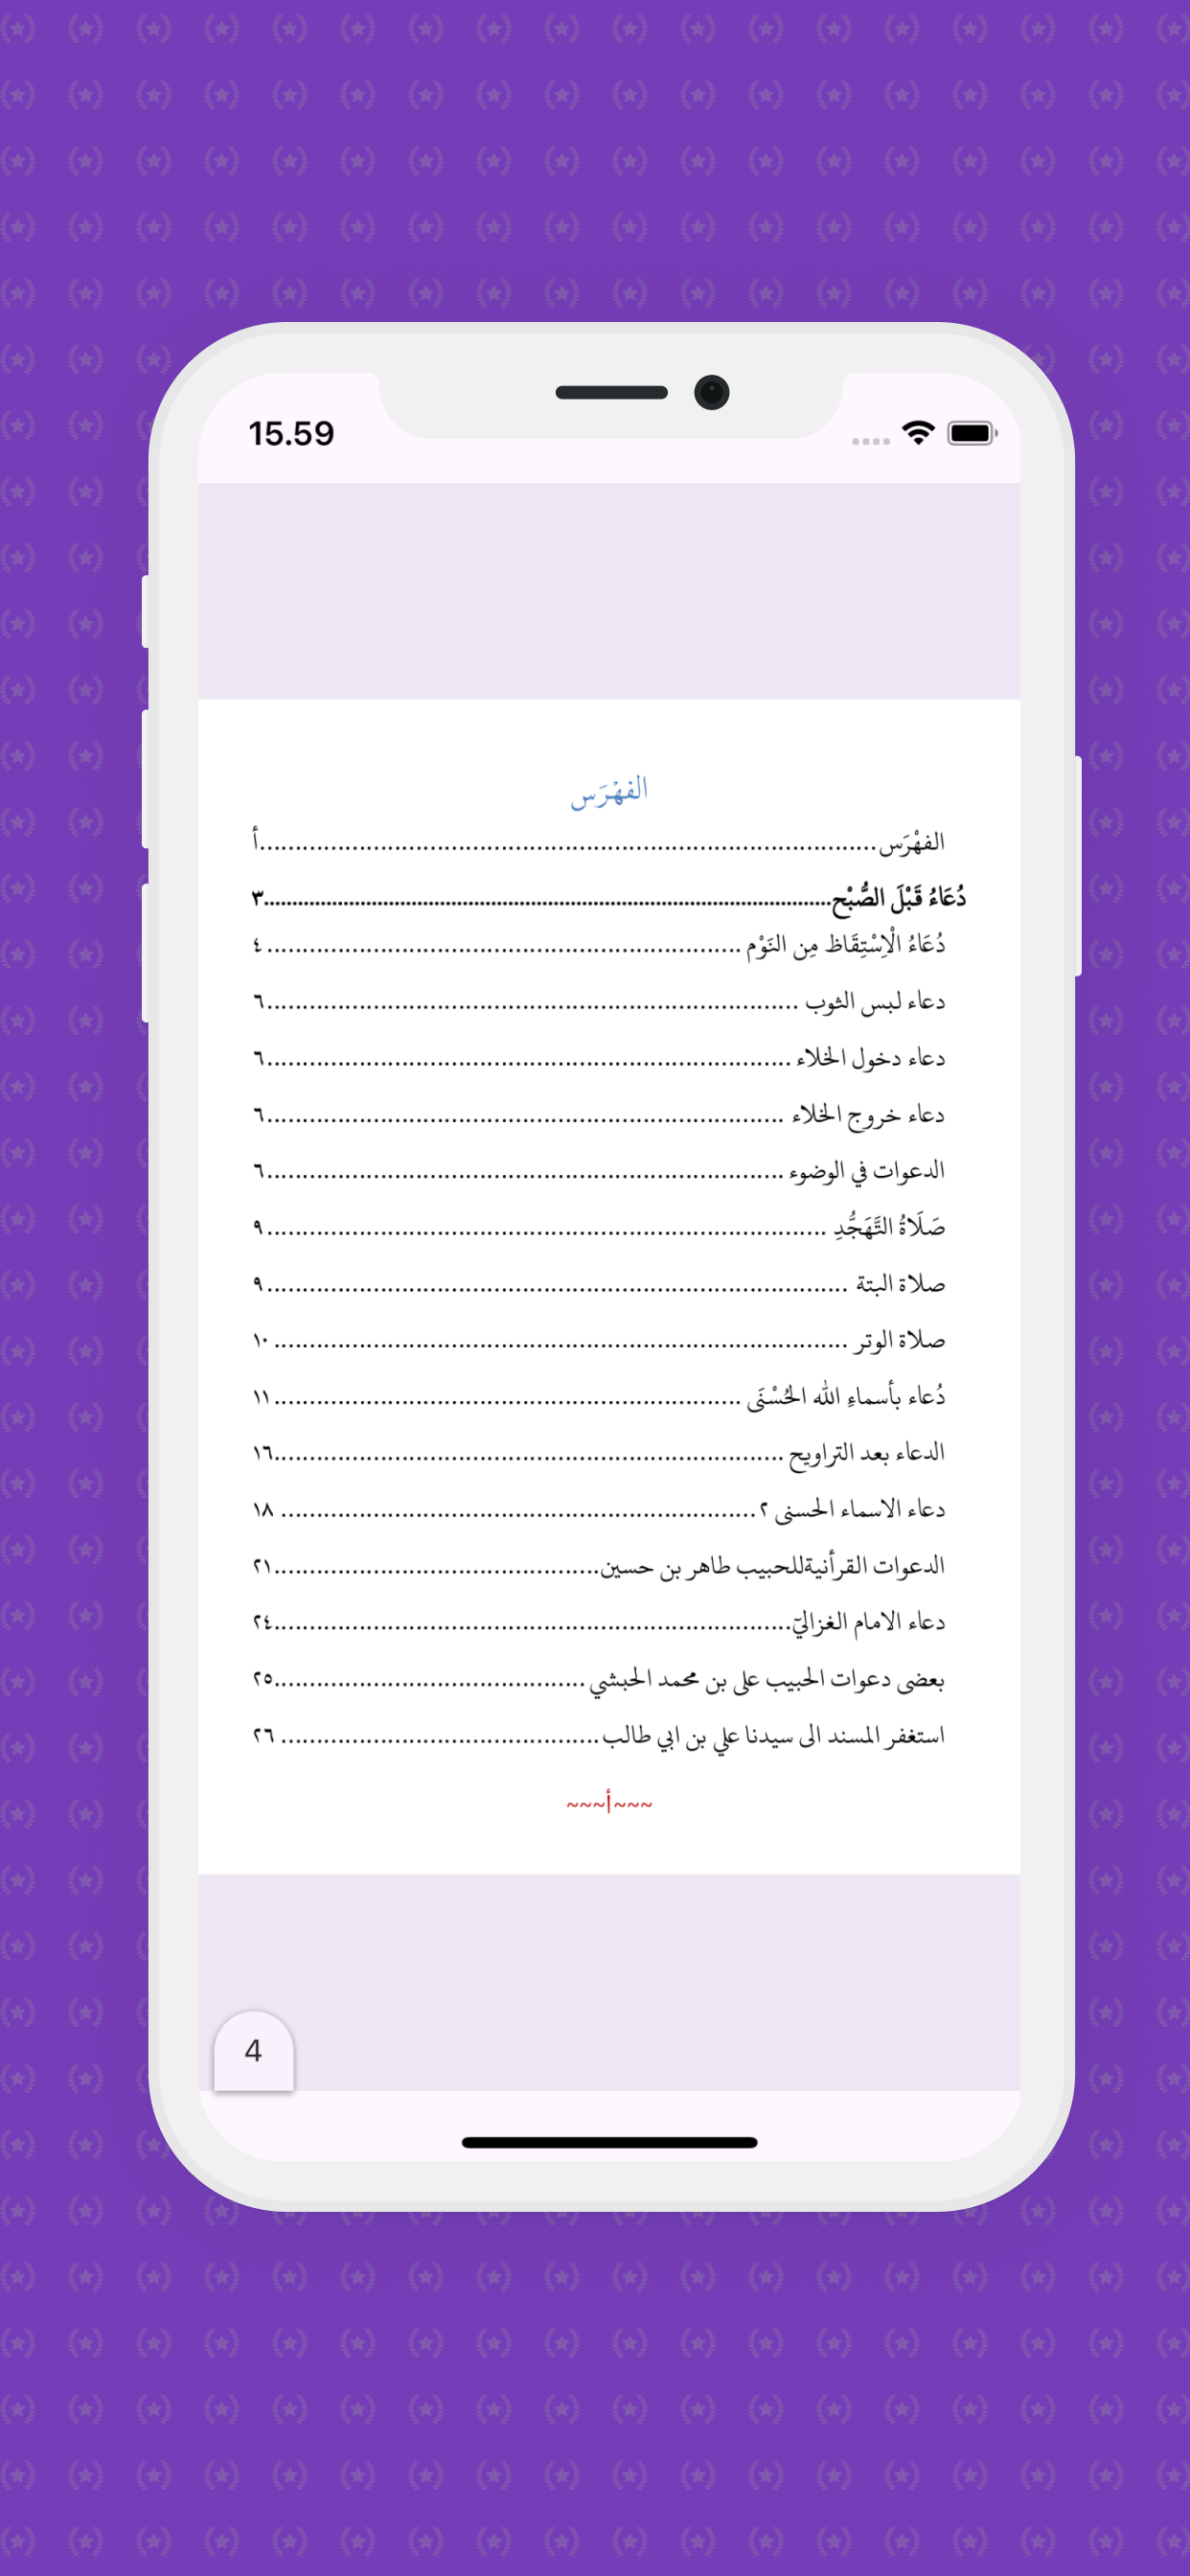 15.59
الفهْرَس
الفهْرَس........................................................................................أ
دُعَاءُ قَبْلَ الصُّبْح....................................................................................................٣
دُعَاءُ الْاِسْتِقَاظ مِن النَوْم ...................................................................٤
دعاء لبس الثوب ...........................................................................٦
دعاء دخول الخلاء ..........................................................................٦
دعاء خروج الخلاء .........................................................................٦
الدعوات في الوضوء .........................................................................٦
صَلَاةُ التَّهَجُّدِ ...............................................................................٩
صلاة البتة ..................................................................................٩
صلاة الوتر .................................................................................١٠
دُعاء بأسماءِ الله الحُسْنَى ..................................................................١١
الدعاء بعد التراويح ........................................................................١٦
دعاء الاسماء الحسنى ٢...................................................................١٨
الدعوات القرأنيةللحبيب طاهر بن حسين..............................................٢١
دعاء الامام الغزاليّ.........................................................................٢٤
بعضى دعوات الحبيب على بن محمد الحبشي ............................................٢٥
استغفر المسند الى سيدنا علي بن ابي طالب .............................................٢٦
~~~أ~~~
4